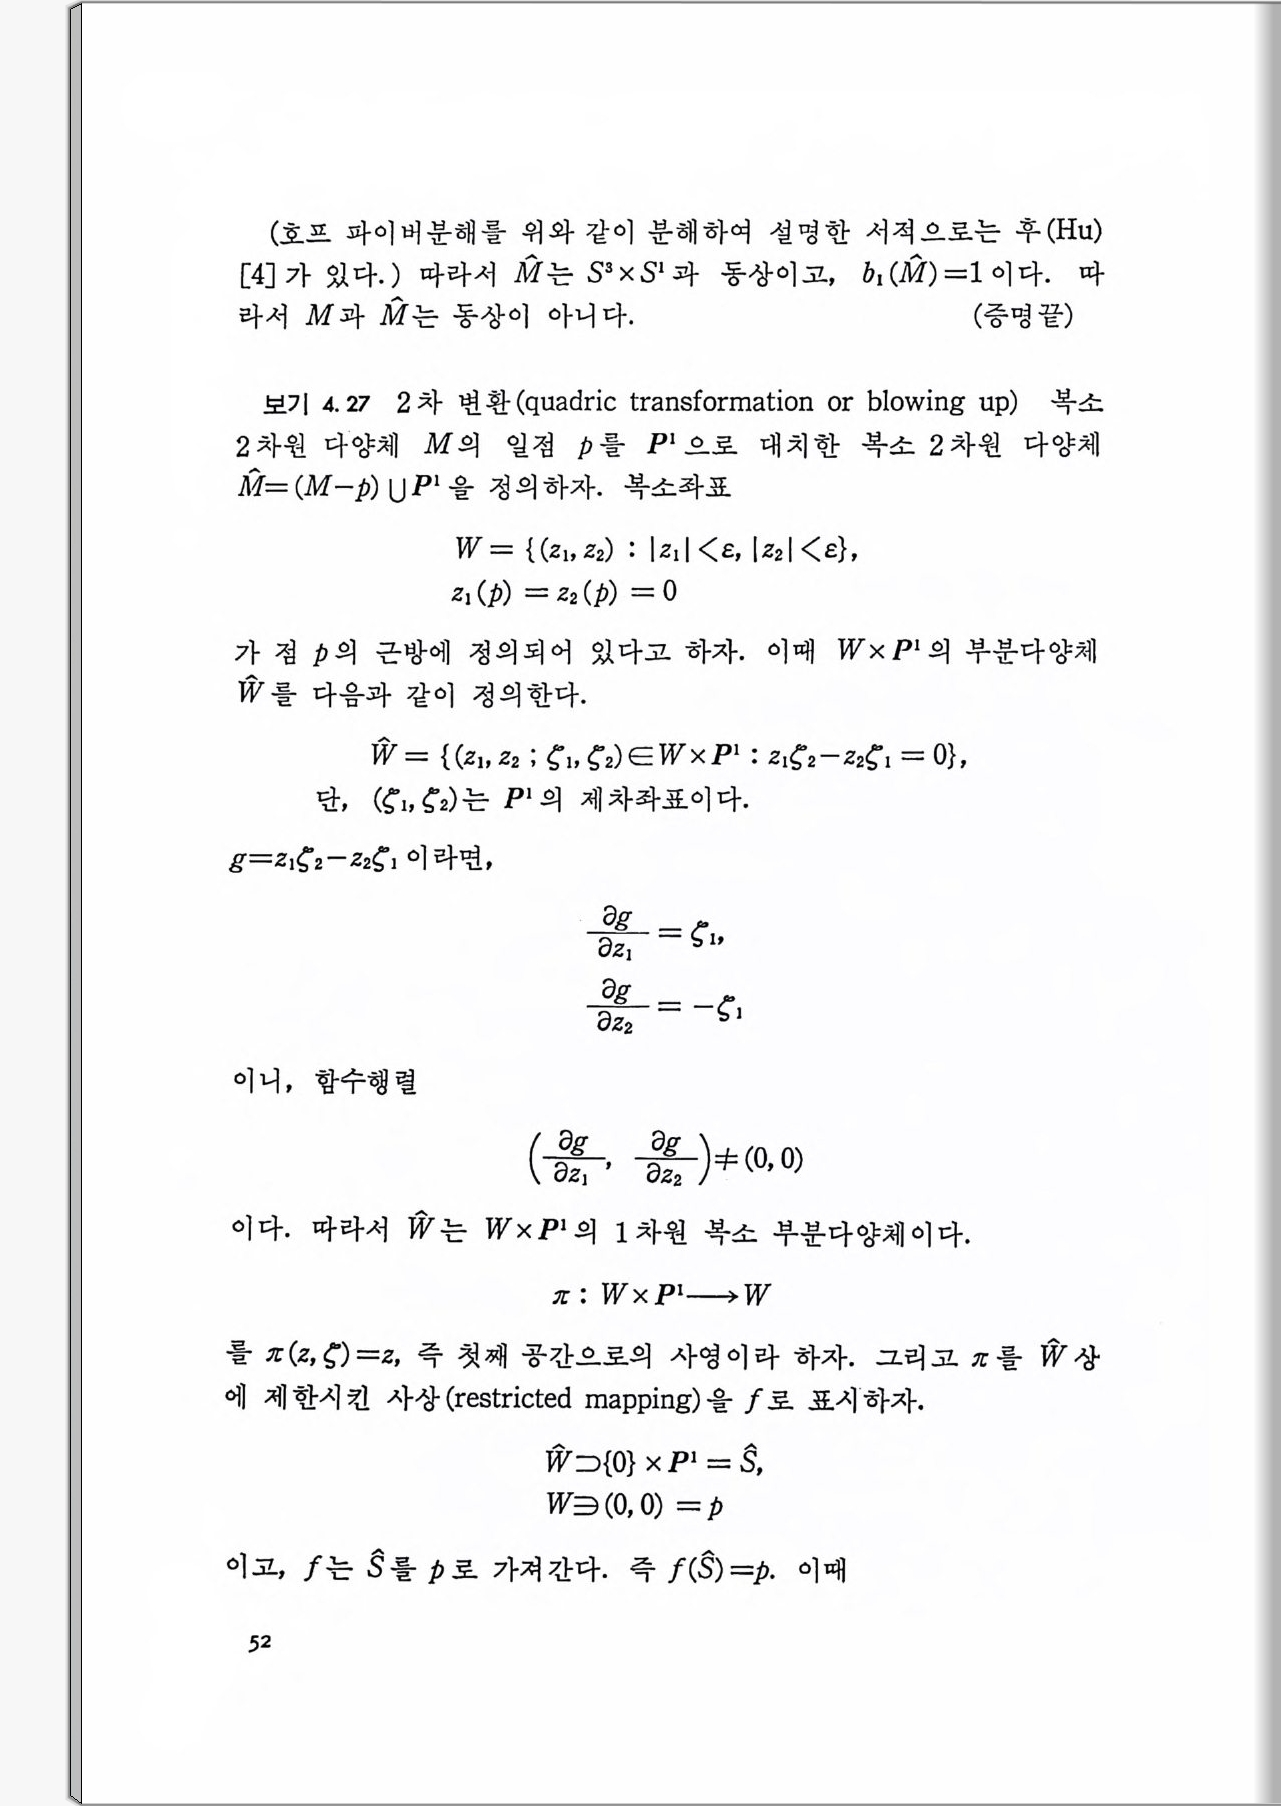 (호프 파이버분해를 위와 같이 분해하여 설명한 서적으로는 후(Hu)
[4]가 있다.) 따라서 M̂는 S³×S¹과 동상이고, b₁(M̂)=1이다. 따
라서 M과 M̂는 동상이 아니다. (증명끝)
보기 4.27 2차 변환(quadric transformation or blowing up) 복소
2차원 다양체 M의 일점 p를 P¹으로 대치한 복소 2차원 다양체
M̂=(M−p)∪P¹을 정의하자. 복소좌표
W = {(z₁, z₂) : |z₁|<ε, |z₂|<ε},
z₁(p) = z₂(p) = 0
가 점 p의 근방에 정의되어 있다고 하자. 이때 W×P¹의 부분다양체
Ŵ를 다음과 같이 정의한다.
Ŵ = {(z₁, z₂ ; ζ₁, ζ₂)∈W×P¹ : z₁ζ₂−z₂ζ₁ = 0},
단, (ζ₁, ζ₂)는 P¹의 제차좌표이다.
g=z₁ζ₂−z₂ζ₁이라면,
∂g/∂z₁ = ζ₁,
∂g/∂z₂ = −ζ₁
이니, 함수행렬
(∂g/∂z₁, ∂g/∂z₂)≠(0, 0)
이다. 따라서 Ŵ는 W×P¹의 1차원 복소 부분다양체이다.
π : W×P¹⟶W
를 π(z, ζ)=z, 즉 첫째 공간으로의 사영이라 하자. 그리고 π를 Ŵ상
에 제한시킨 사상(restricted mapping)을 f로 표시하자.
Ŵ⊃{0}×P¹ = Ŝ,
W∋(0, 0) = p
이고, f는 Ŝ를 p로 가져간다. 즉 f(Ŝ)=p. 이때
52